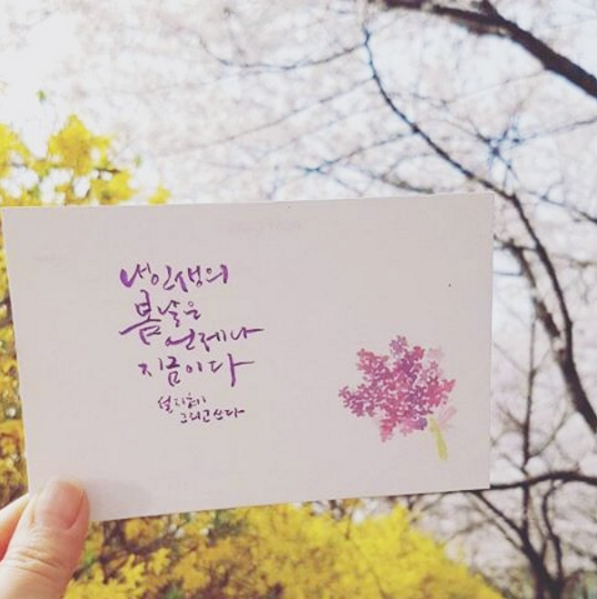 내 인생의
봄날은
언제나
지금이다
설지혜
그리고 쓰다